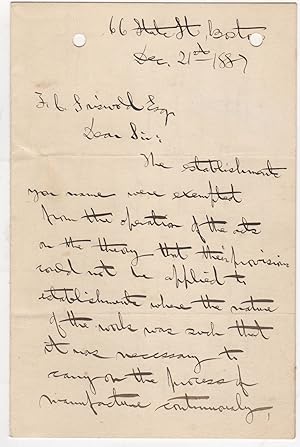 66 State St, Boston
Dec. 21st 1887
F. C. Griswold Esq
Dear Sir:
The establishments
you name were exempted
from the operation of the acts
on the theory that their provisions
could not be applied to
establishments where the nature
of the works was such that
it was necessary to
carry on the process of
manufacture continuously,